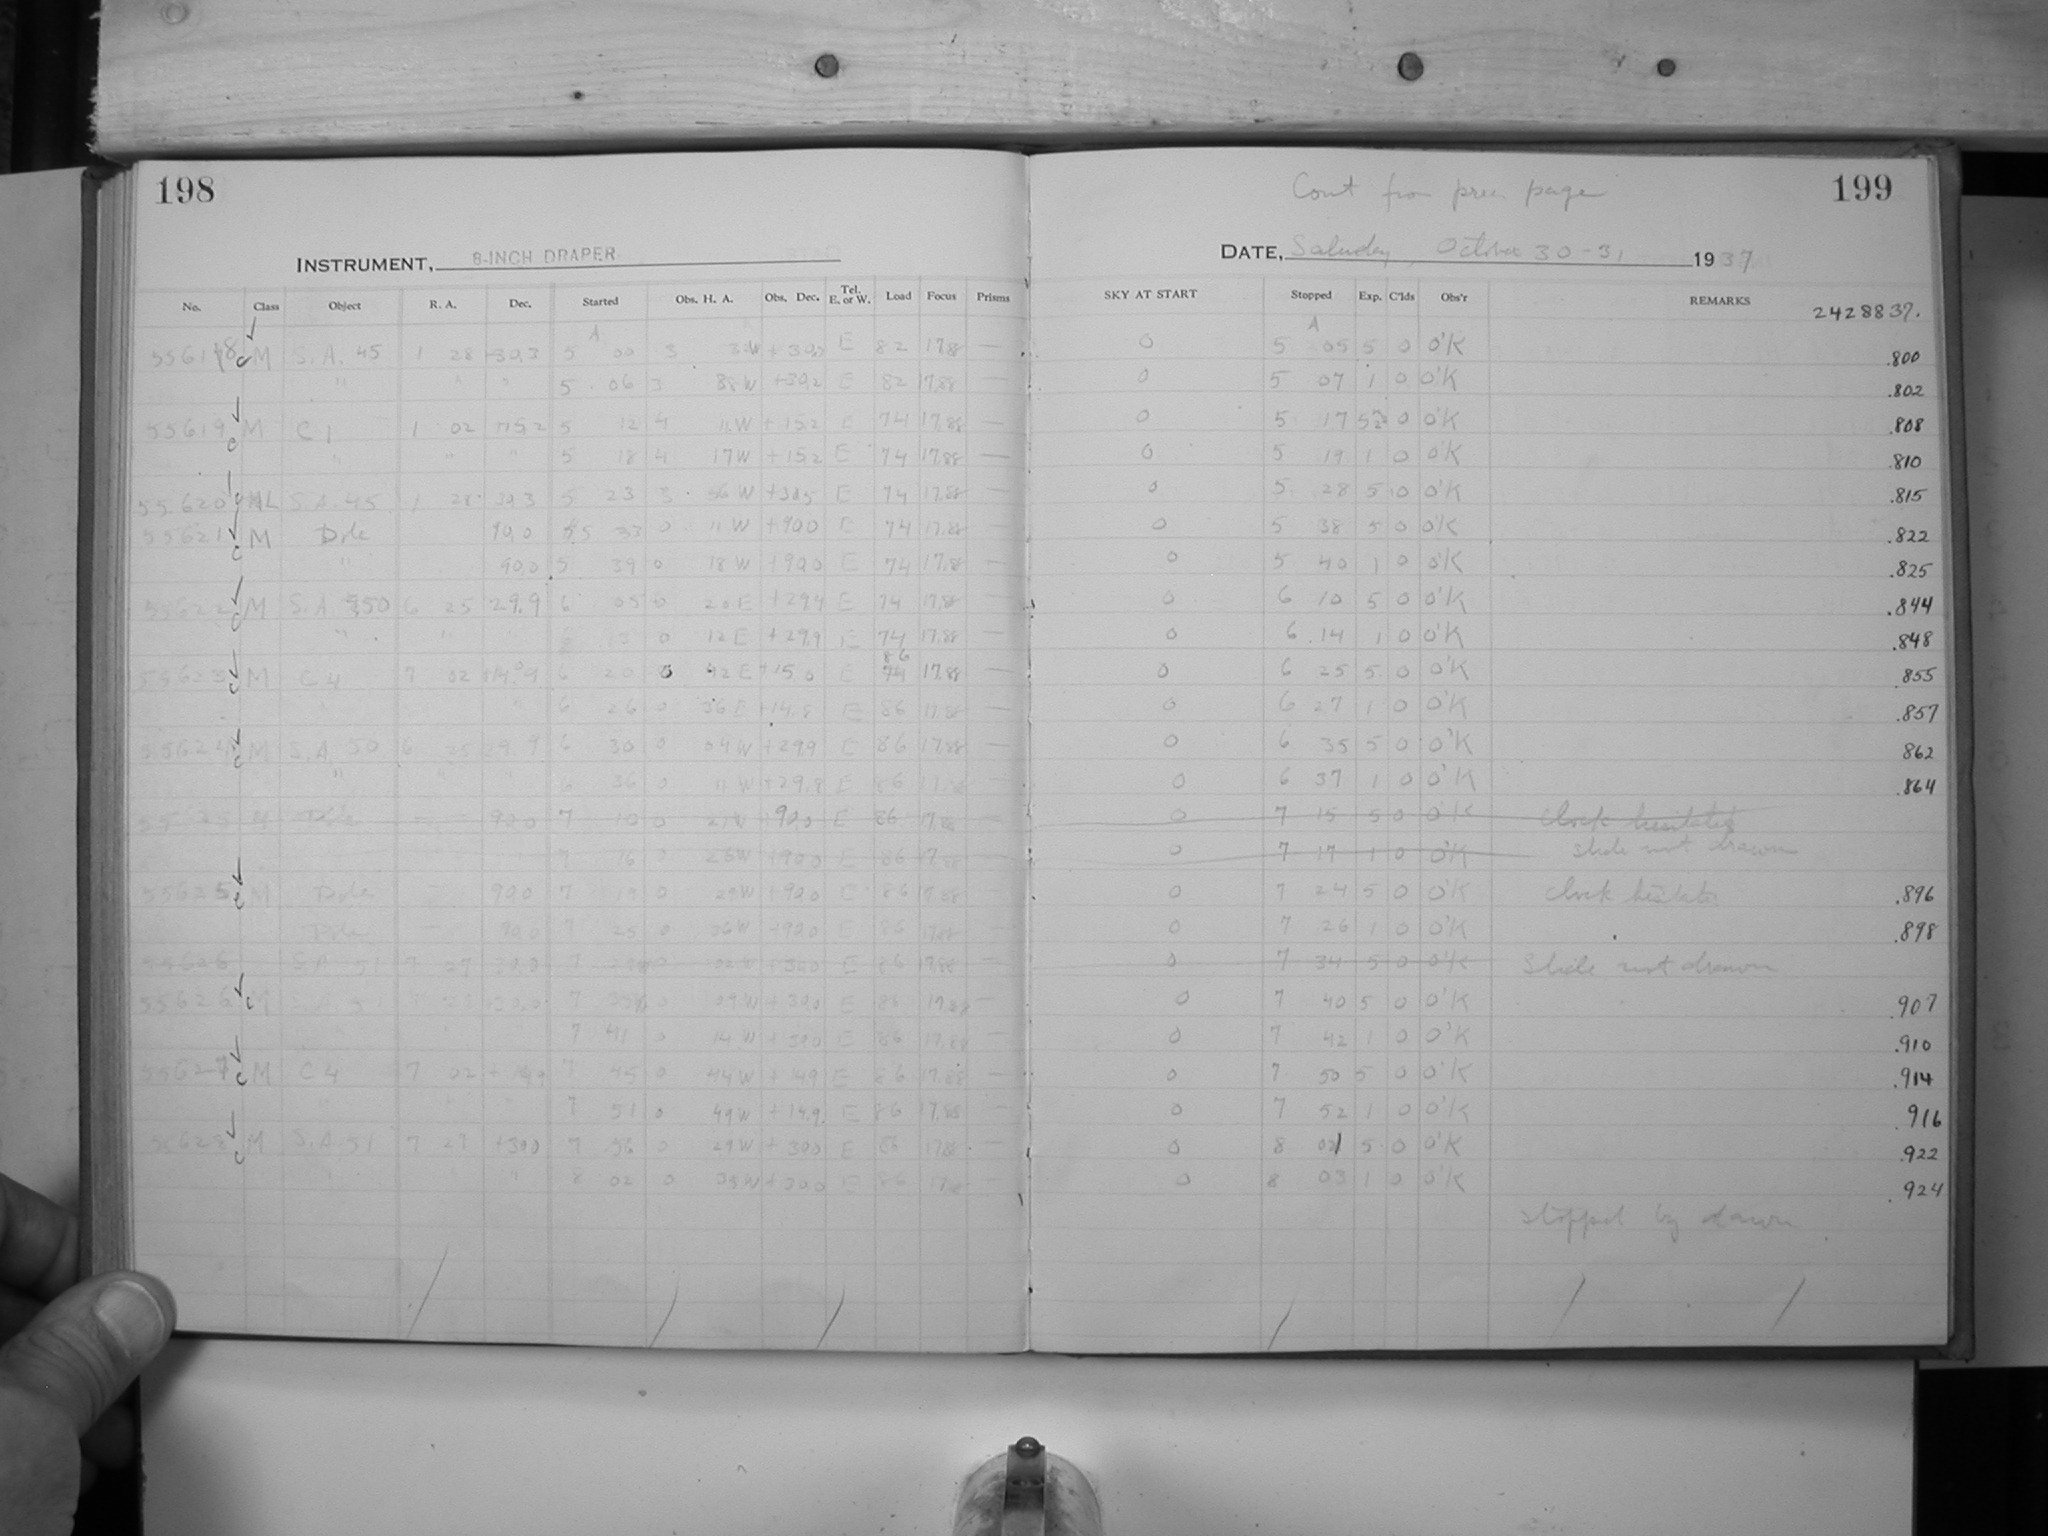 198
Cont from prec page
199
INSTRUMENT, 8-INCH DRAPER
DATE, Saturday, October 30-31 1937
No. Class Object R. A. Dec. Started Obs. H. A. Obs. Dec. Tel. E. or W. Load Focus Prisms SKY AT START Stopped Exp. C'lds Obs'r REMARKS
2428837.
A A
55618 M S.A. 45 1 28 +30.3 5 00 3 W E 82 17.88 — 0 5 05 5 0 O'K .800
" " " 5 06 3 W +30.2 E 82 17.88 — 0 5 07 1 0 O'K .802
55619 M C1 1 02 +15.2 5 12 4 11 W +15.2 E 74 17.88 — 0 5 17 5 0 O'K .808
" " " 5 18 4 17 W +15.2 E 74 17.88 — 0 5 19 1 0 O'K .810
55620 S.A. 45 1 28 30.3 5 23 3 W +30.5 E 74 17.88 — 0 5 28 5 0 O'K .815
55621 M Pole 90.0 5 33 0 11 W +90.0 E 74 17.88 — 0 5 38 5 0 O'K .822
" 90.0 5 39 0 18 W +90.0 E 74 17.88 — 0 5 40 1 0 O'K .825
55622 M S.A. 50 6 25 29.9 6 05 0 20 E +29.4 E 74 17.88 — 0 6 10 5 0 O'K .844
" " " 6 13 0 12 E +29.9 E 74 17.88 — 0 6 14 1 0 O'K .848
55623 M C4 7 02 +14.9 6 20 0 42 E +15.0 E 86 17.88 — 0 6 25 5 0 O'K .855
" " 6 26 0 36 E +14.8 E 86 17.88 — 0 6 27 1 0 O'K .857
55624 M S.A. 50 6 25 29.9 6 30 0 04 W +29.9 E 86 17.88 — 0 6 35 5 0 O'K .862
" " " 6 36 0 11 W +29.8 E 86 17.88 — 0 6 37 1 0 O'K .864
55625 M Pole — 90.0 7 10 0 21 W +90.0 E 86 17.88 — 0 7 15 5 0 O'K Clock hesitates
" " 7 16 0 26 W +90.0 E 86 17.88 — 0 7 17 1 0 O'K slide not drawn
55625 M Pole — 90.0 7 19 0 29 W +90.0 E 86 17.88 — 0 7 24 5 0 O'K Clock hesitates .896
Pole — 90.0 7 25 0 36 W +90.0 E 86 17.88 — 0 7 26 1 0 O'K .898
55626 S.A. 51 7 27 30.0 7 29 0 02 W +30.0 E 86 17.88 — 0 7 34 5 0 O'K Slide not drawn
55626 M S.A. 51 7 27 +30.0 7 35 0 09 W +30.0 E 86 17.88 — 0 7 40 5 0 O'K .907
7 41 0 14 W +30.0 E 86 17.88 — 0 7 42 1 0 O'K .910
55627 M C4 7 02 +14.9 7 45 0 44 W +14.9 E 86 17.88 — 0 7 50 5 0 O'K .914
" " " 7 51 0 49 W +14.9 E 86 17.88 — 0 7 52 1 0 O'K .916
55628 M S.A. 51 7 27 +30.0 7 56 0 29 W +30.0 E 86 17.88 — 0 8 01 5 0 O'K .922
" " " 8 02 0 35 W +30.0 E 86 17.88 — 0 8 03 1 0 O'K .924
Stopped by dawn